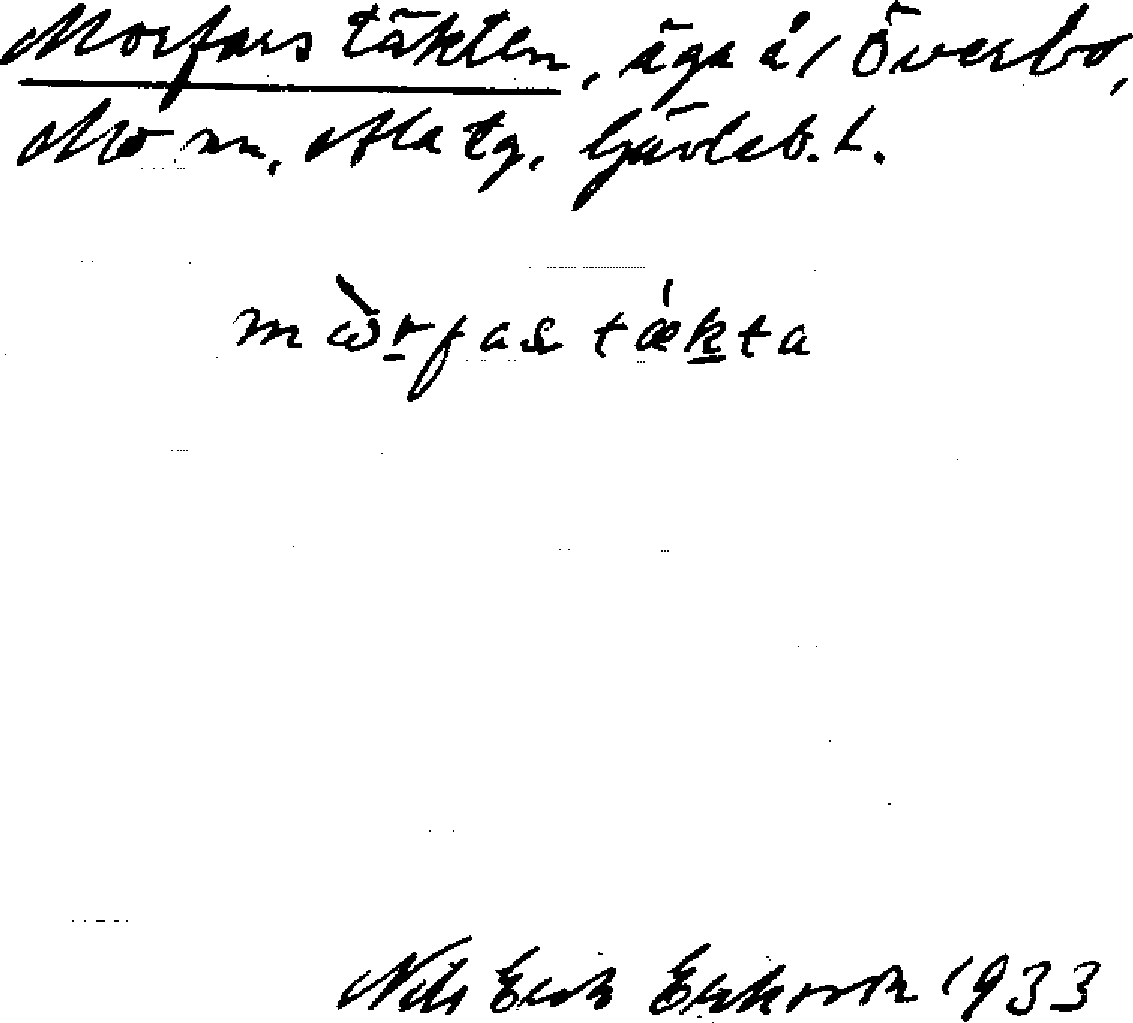 Morfarstäkten, äga å 1 Överbo,
Mo sn, Ala tg, Gävleb. L.
mɷ̀rfas tǽkta
Nils Erik Eriksson 1933